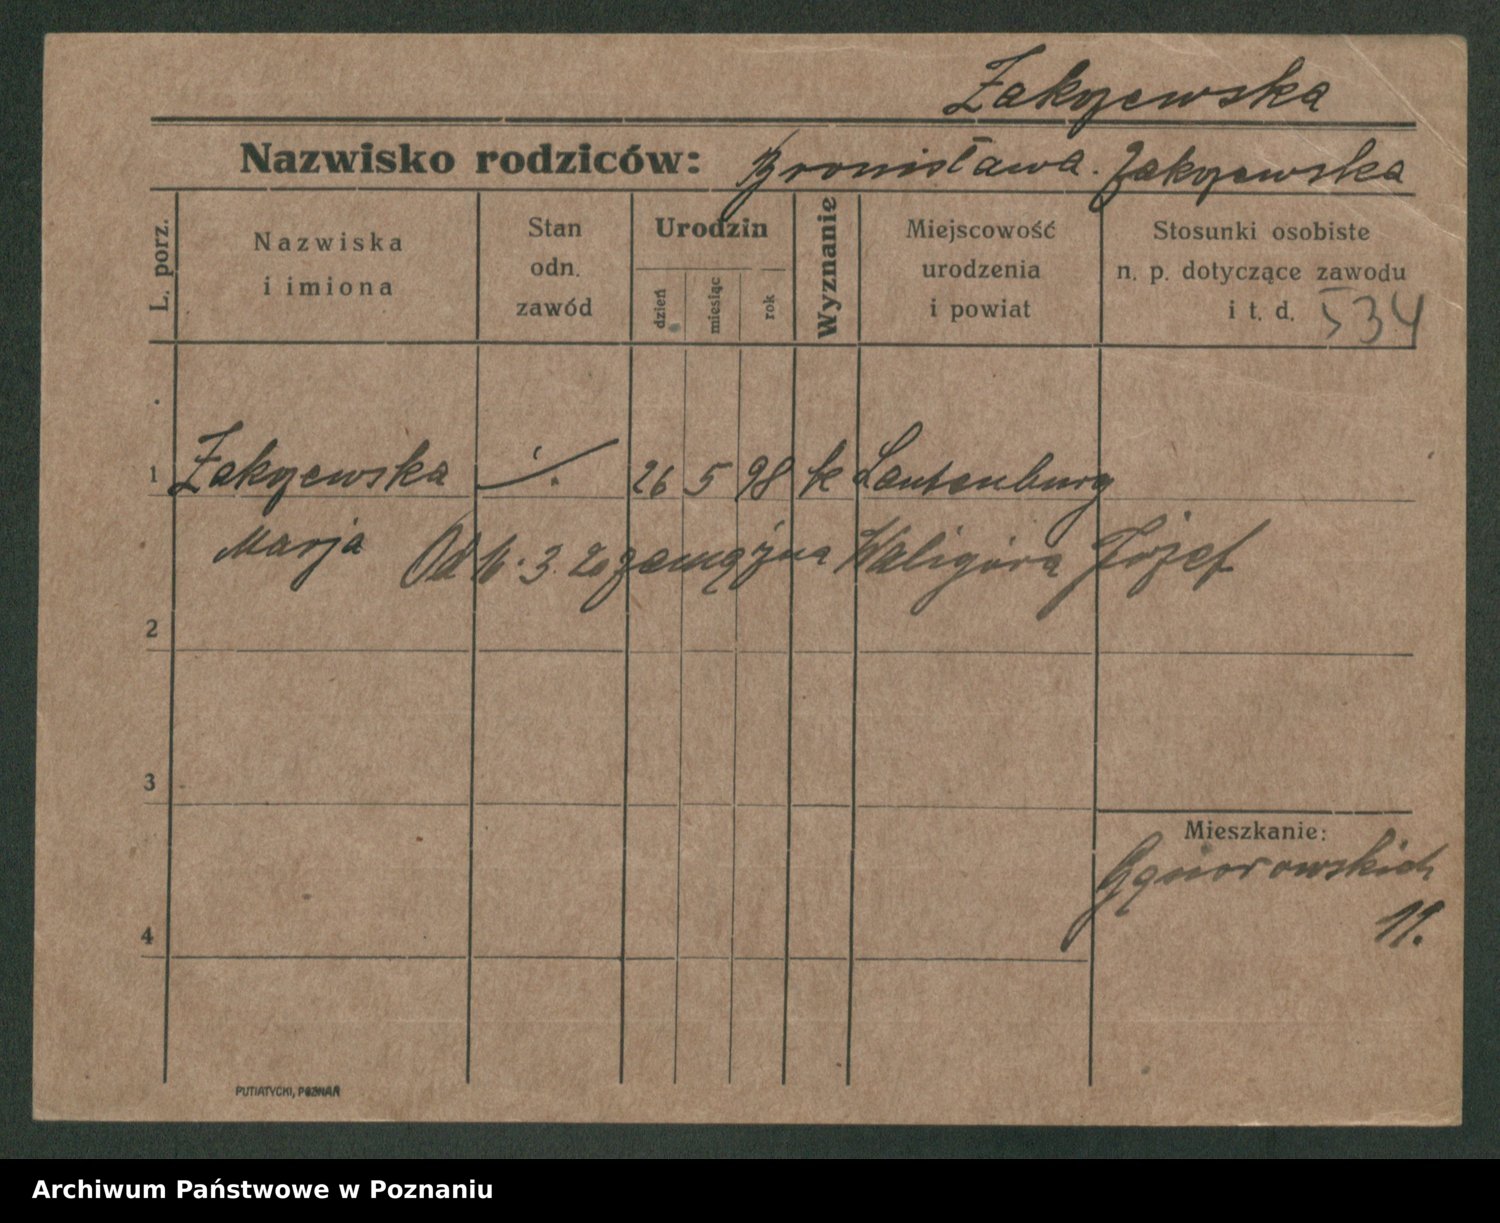 Zakrzewska
Nazwisko rodziców: Bronisława Zakrzewska
L. porz.
Nazwiska
i imiona
Stan
odn.
zawód
Urodzin
dzień
miesiąc
rok
Wyznanie
Miejscowość
urodzenia
i powiat
Stosunki osobiste
n. p. dotyczące zawodu
i t. d. 534
1 Zakrzewska 26 5 98 k Lautenburg
Marja Od 3. 20 zamężna Waligóra Józef
2
3
Mieszkanie:
Gąsiorowskich
11.
4
PUTIATYCKI, POZNAŃ
Archiwum Państwowe w Poznaniu